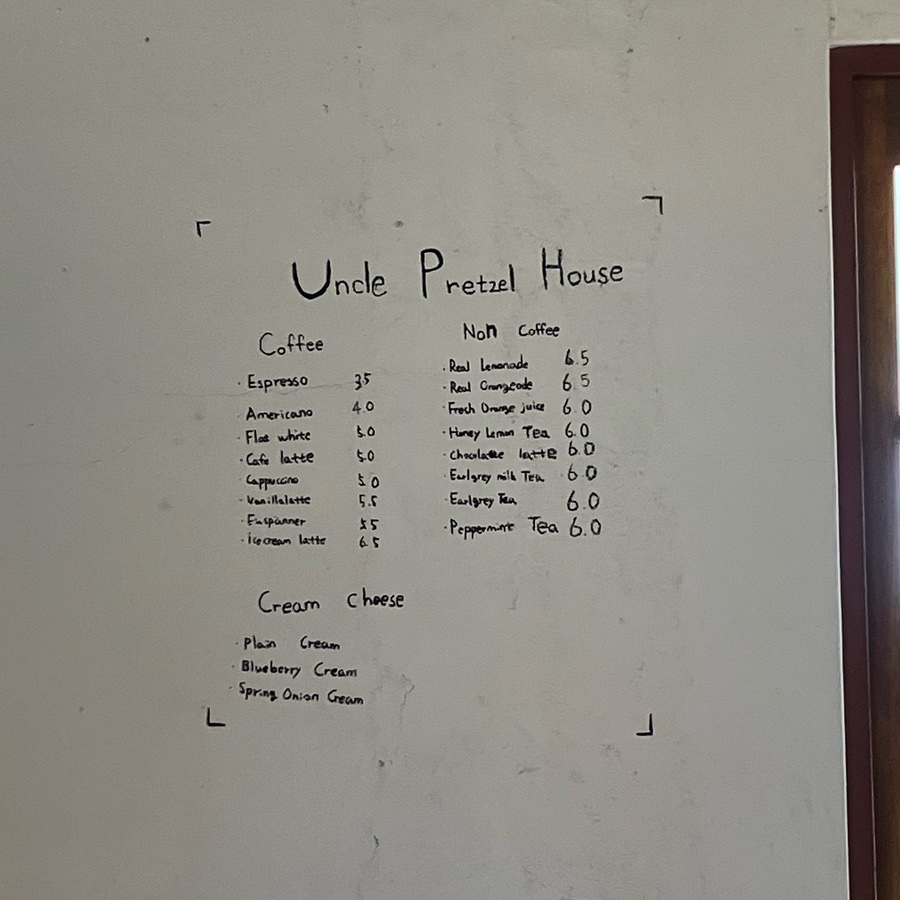 Uncle Pretzel House
Coffee
· Espresso 3.5
· Americano 4.0
· Flat white 5.0
· Cafe latte 5.0
· Cappuccino 5.0
· Vanillalatte 5.5
· Einspanner 5.5
· Icecream latte 6.5
Non Coffee
· Real Lemonade 6.5
· Real Orangeade 6.5
· Fresh Orange juice 6.0
· Honey Lemon Tea 6.0
· Chocolatte latte 6.0
· Earlgrey milk Tea 6.0
· Earlgrey Tea 6.0
· Peppermint Tea 6.0
Cream Cheese
· Plain Cream
· Blueberry Cream
· Spring Onion Cream